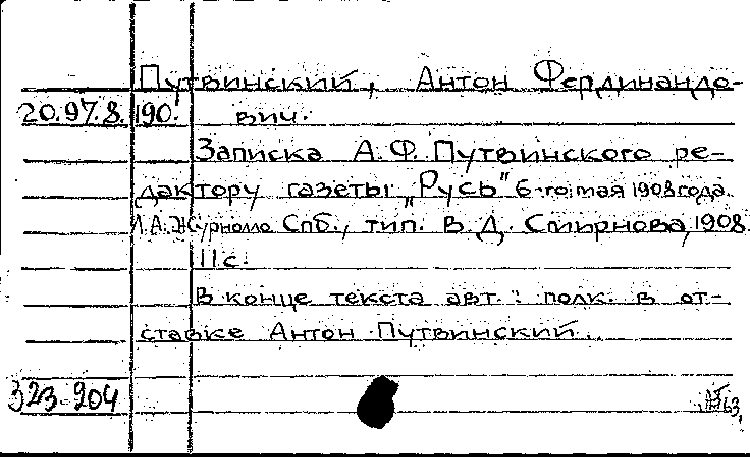 Путвинский, Антон Фердинандо-
20.97.8.190. вич.
Записка А.Ф. Путвинского ре-
дактору газеты „Русь" 6-го мая 1908 года.
Л.А. Журналло Спб., тип. В.Д. Смирнова, 1908.
11 с.
В конце текста авт.: полк. в от-
ставке Антон Путвинский.
323-904
63,